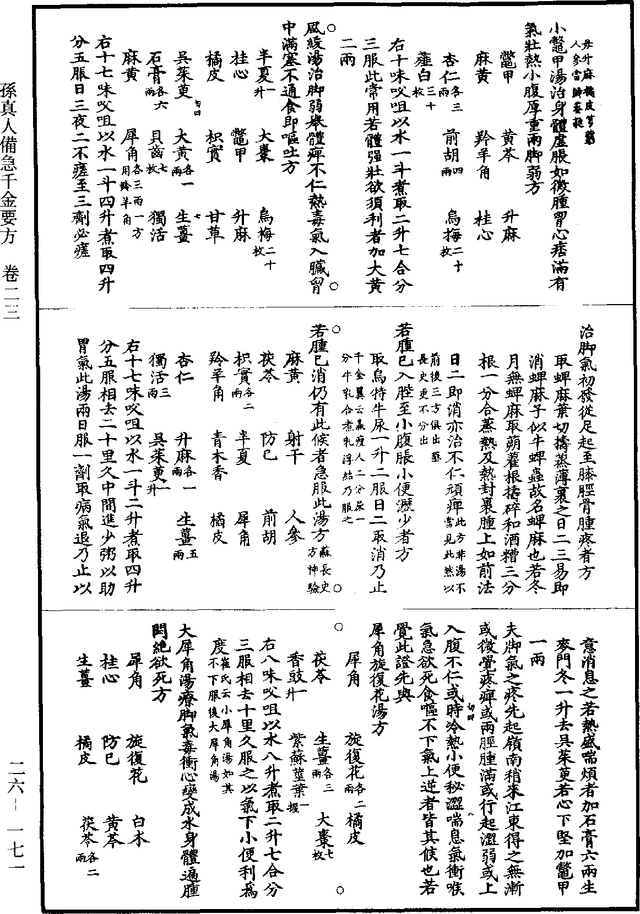 毋升麻橘皮芎藭
人參當歸蒼耳
小鼈甲湯治身體虛脹如微腫胃心痞滿有
氣壯熱小腹厚重兩脚弱方
鼈甲 黃芩 升麻
麻黃 羚羊角 桂心
杏仁各三兩 前胡四兩 烏梅二十枚
薤白三十枚
右十味㕮咀以水一斗煮取二升七合分
三服此常用若體强壯欲須利者加大黃
二兩
風緩湯治脚弱舉體痺不仁熱毒氣入臟胷
中滿塞不通食即嘔吐方
半夏一升 大棗 烏梅二十枚
桂心 鼈甲 升麻
橘皮 枳實 甘草
吳茱萸 大黃各一兩 生薑
石膏各六兩 貝齒七枚 獨活
麻黃 犀角各三兩一方用羚羊角
右十七味㕮咀以水一斗四升煮取四升
分五服日三夜二不瘥至三劑必瘥
治脚氣初發從足起至膝脛骨腫疼者方
取蜱麻葉切擣蒸薄裹之日二三易即
消蜱麻子似牛蜱蟲故名蜱麻也若冬
月無蜱麻取蒴藋根擣碎和酒糟三分
根一分合蒸熱及熱封裹腫上如前法
日二即消亦治不仁頑痺此方非湯不當見此然以
前後三方俱出蘇
長史更不分出
若腫已入䏶至小腹脹小便澀少者方
取烏特牛尿一升二服日二取消乃止
千金翼云羸瘦人二分尿一
分牛乳合煮乳浮結乃服之
若腫已消仍有此候者急服此湯方蘇長史方神驗
麻黃 射干 人參
茯苓 防已 前胡
枳實各二兩 半夏 犀角
羚羊角 青木香 橘皮
杏仁 升麻各一兩 生薑五兩
獨活三兩 吳茱萸一升
右十七味㕮咀以水一斗二升煮取四升
分五服相去二十里久中間進少粥以助
胃氣此湯兩日服一劑取病氣退乃止以
意消息之若熱盛喘煩者加石膏六兩生
麥門冬一升去吳茱萸若心下堅加鼈甲
一兩
夫脚氣之疾先起嶺南稍來江東得之無漸
或微覺疼痺或兩脛腫滿或行起澀弱或上
入腹不仁或時冷熱小便秘澀喘息氣衝喉
氣急欲死食嘔不下氣上逆者皆其候也若
覺此證先與
犀角旋復花湯方
犀角 旋復花各二兩 橘皮
茯苓 生薑各三兩 大棗七枚
香豉一升 紫蘇莖葉一握
右八味㕮咀以水八升煮取二升七合分
三服相去十里久服之以氣下小便利爲
度崔氏云小犀角湯如其不下服後大犀角湯
大犀角湯療脚氣毒衝心變成水身體遍腫
悶絕欲死方
犀角 旋復花 白术
桂心 防已 黃芩
生薑 橘皮 茯苓各二兩
孫真人備急千金要方 卷二三
二六—一七一